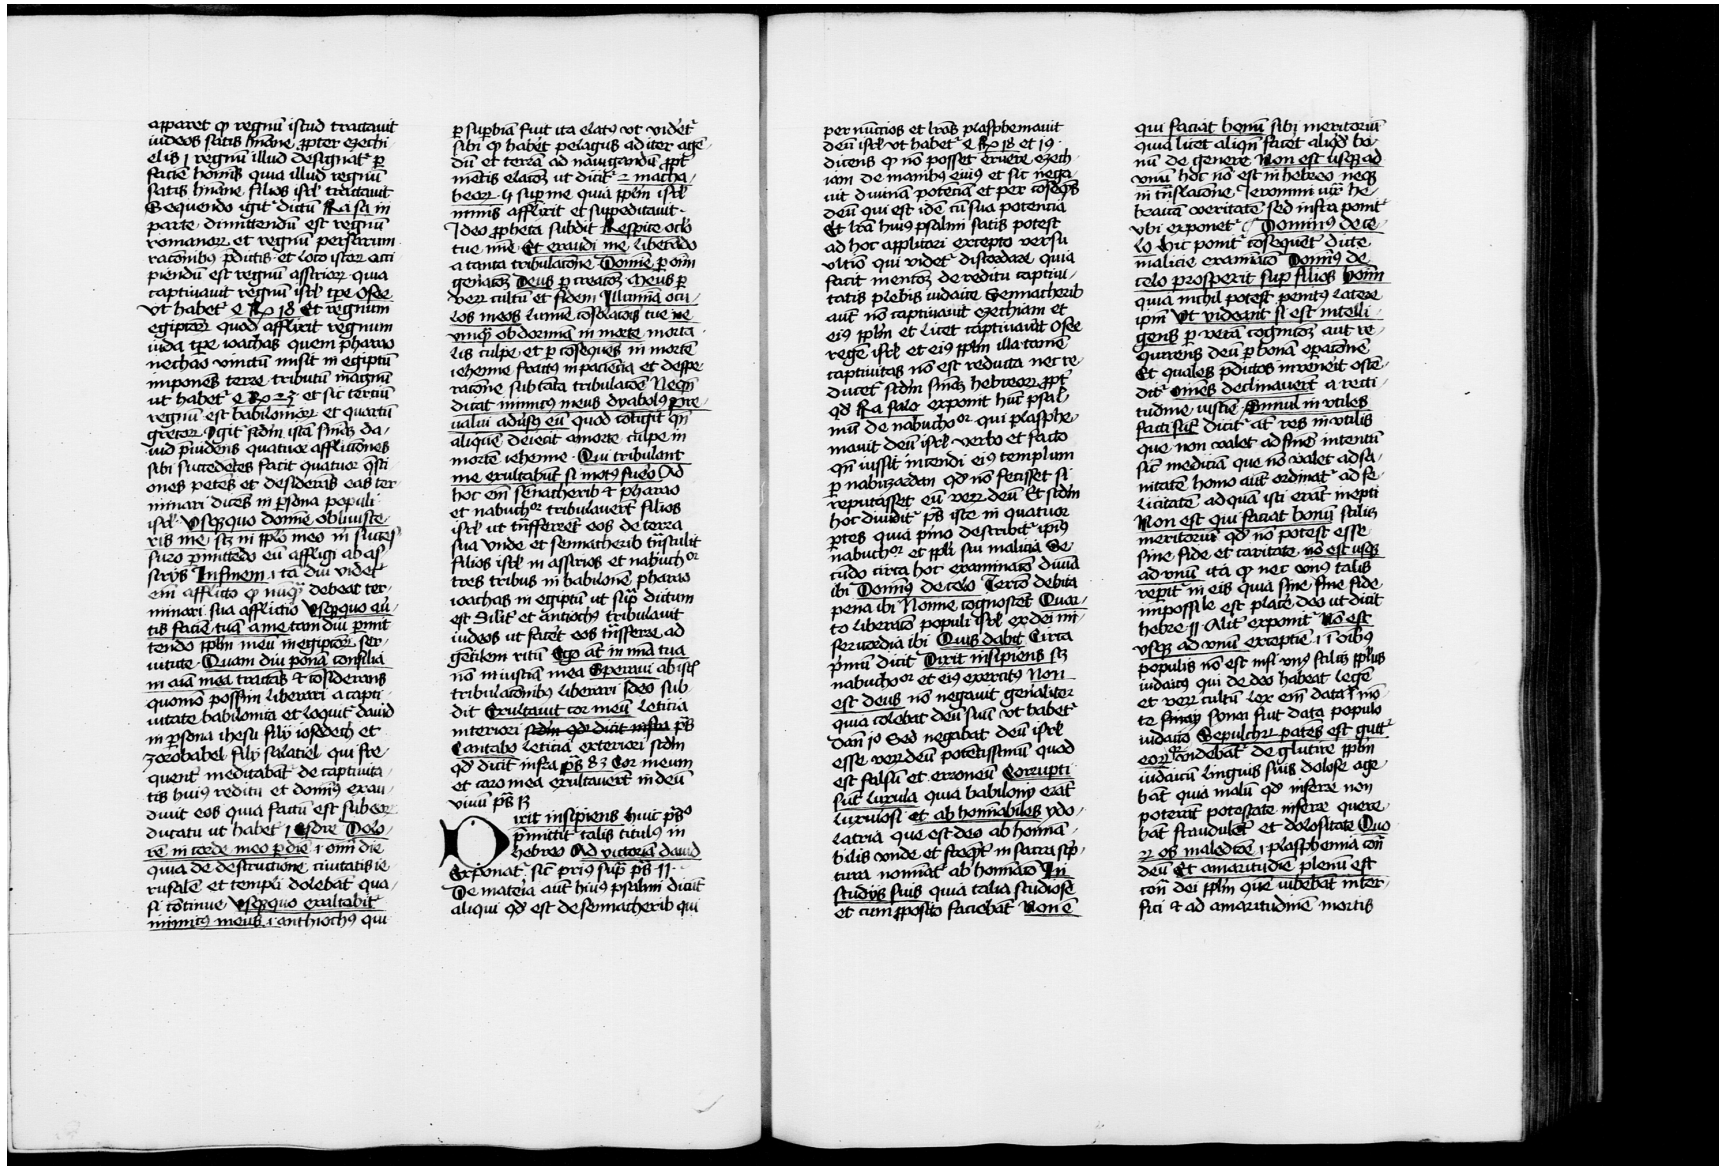 apparet qꝫ regnū istud tractauit
iudeos satis hūane ꝓpter ezechi
elis 1 regnū illud designat᷑ ꝑ
faciē hoīnis quia illud regnū
satis hūane filios isrl̄ tractauit
Sequendo igit᷑ dictū Ra sa in
parte dimittendū est regnū
romanoꝝ et regnū persarum
racōnibꝰ p̄dictis et loco istoꝝ acci
piendū est regnū assirioꝝ quia
captiuauit regnū isrl̄ tp̄e Osee
vt habet᷑ 2 Rꝫ 18 Et regnum
egiptioꝝ quod afflixit regnum
iuda tp̄e ioachas quem pharao
nechao vinctū misit in egiptū
imponēs terre tributū magnū
ut habet᷑ 2 Rꝫ 23 et sic terciū
regnū est babilonioꝝ et quartū
grecoꝝ Igit᷑ scdm̄ istā sinīaꝫ da
uid p̄uidens quatuor afflictiones
sibi succedētes facit quatuor q̄sti
ones petēs et desiderās eas ter
minari dicēs in ꝑsona populi
isrl̄ Vsqꝫquo domīe obliuisce
ris me scꝫ in ppl̄o meo in succes
suro ꝑmittēdo eū affligi ab as
sirijs In finem i ta diu videt᷑
em̄ afflictō qꝫ nūqꝫ debeat ter
minari sua afflictio Vsqꝫquo au
tis faciē tuā a me tam diu ꝑmit
tendo ppl̄m meū in egiptioꝝ ser
uitute Quam diu ponā consilia
in aīa mea tractās et cōsiderans
quomō possim liberari a capti
uitate babilonica et loquit᷑ dauid
in ꝑsona ihesu filij iosedech et
zorobabel filij salatiel qui fre
quent᷑ meditabāt᷑ de captiuita
tis huiꝰ reditu et domīnꝰ exau
diuit eos quia factū est sub eoꝝ
ducatu ut habet᷑ 1 Esdre Dolo
rē in corde meo ꝑ diē i om̄i die
quia de destructione ciuitatis ie
rusalē et templi dolebāt qua
si cōtinue Vsqꝫquo exaltabit᷑
inimicꝰ meus i anthiochꝰ qui
ꝑ suꝑbiā fuit ita elatꝰ vt videt᷑
sibi qꝫ habet᷑ pelagus ad iter agē
dū et terrā ad nauigandū ꝓpt᷑
mētis elacōꝫ ut dicit᷑ 2 macha
beoꝝ 9 super me quia ppl̄m isrl̄
nimis afflixit et suppeditauit
Ideo ꝓpheta subdit Respice oclō
tue mīe Et exaudi me liberādo
a tanta tribulacōne Domīe ꝑ om̄i
gēnacōꝫ Deus ꝑ creacōꝫ Meus ꝑ
veꝝ cultū et fidem Illumina ocu
los meos lumīe cōsolacōis tue ne
vmqꝫ obdormiā in morte morta
lis culpe et ꝑ cōsequēs in mortē
iehenne fractꝰ in paciēcia et despe
racōne sub tāta tribulacōe Neqn̄
dicat inimicꝰ meus dyabolꝰ Pre
ualui adūsꝰ eū quod cōtigit qn̄
aliquē deiecit a morte culpe in
mortē iehenne Qui tribulant
me exultabūt si motꝰ fuero Ad
hoc em̄ sēnacherib et pharao
et nabuchoꝛ tribulauerūt filios
isrl̄ ut trāsferrēt eos de terra
sua Vnde et sennacherib trāstulit
filios isrl̄ in assirios et nabuchoꝛ
tres tribus in babilonē pharao
ioachas in egiptū ut supᷓ dictum
est Silīt᷑ et antiochꝰ tribulauit
iudeos ut facēt eos trāsferre ad
gētilem ritū Ego aūt in mīa tua
nō in iusticia mea Speraui ab istꝭ
tribulacōnibꝰ liberari Ideo sub
dit Exultauit cor meū leticia
interiori scdm̄ qd̄ dicit infra ps̄
Cantabo leticia exteriori scdm̄
qd̄ dicit infra ps̄ 83 Cor meum
et caro mea exultauerūt in deū
viuū ps̄ 13
Dixit insipiens huic ps̄o
p̄mittit᷑ talis titulꝰ in
hebreo Ad victoriā dauid
Exponat᷑ sic᷑ priꝰ supᷓ ps̄ 11
De materia aūt huiꝰ psalmi dicūt
aliqui qd̄ est de sennacherib qui
per nūcios et lrās plasphemauit
deū isrl̄ vt habet᷑ 2 Rꝫ 18 et 19
dicens qꝫ nō posset eruere ezech
iam de manibꝰ eiꝰ et sic nega
uit diuinā potēciā et per cōseqēs
deū qui est idē cū sua potencia
Et lrā huiꝰ psalmi satis potest
ad hoc applicari excepto versu
vltīo qui videt᷑ discordare quia
facit mencōꝫ de reditu captiui
tatis plebis iudaice Sennacherib
aūt nō captiuauit ezechiam et
eiꝰ ppl̄m et licet captiuauit Osee
regē isrl̄ et eiꝰ ppl̄m illa tamē
captiuitas nō est reducta nec re
ducet᷑ scdm̄ sinīaꝫ hebreoꝝ ꝓpt᷑
qd̄ Ra salo exponit hūc psal
mū de nabuchoꝛ qui plasphe
mauit deū isrl̄ verbo et facto
qn̄ iussit incendi eiꝰ templum
ꝑ nabizardan qd̄ nō fecisset si
reputasset eū veꝝ deū Et scdm̄
hoc diuidit᷑ ps̄ iste in quatuor
ꝑtes quia p̄mo describit᷑ ipīꝰ
nabuchoꝛ et ppl̄i sui malicia Se
cūdo circa hoc examinacō diuīa
ibi Domīnꝰ de celo Tercō debita
pena ibi Nonne cognoscēt Quar
to liberacō populi isrl̄ ex dei mi
sericordia ibi Quis dabit Circa
p̄mū dicit Dixit insipiens scꝫ
nabuchoꝛ et eiꝰ exercitꝰ Non
est deus nō negauit gēnaliter
quia colebat deū suū vt habet᷑
Dan̄ 1o Sed negabat deū isrl̄
esse veꝝ deū potētissimū quod
est falsū et erroneū Corrupti
sūt luxuria quia babilonij erāt
luxuriosi et abhomīabiles ydo
latria que est deo abhomīa
bilis vnde et freqn̄t᷑ in sacra scrip
tura nomināt᷑ abhomīacō In
studijs suis quia talia studiose
et cum ꝓposito faciebāt Non ē
qui faciat bonū sibi meritoriū
quia licet aliqn̄ facēt aliqd̄ bo
nū de genere Non est vsqꝫ ad
vnū hoc nō est in hebreo neqꝫ
in trāslacōne Jeronimi iux̄ he
braicā veritatē sed infra ponit᷑
vbi exponet᷑ Dominꝰ de ce
lo Hic ponit᷑ cōsequēt᷑ dicte
malicie examinacō Dominꝰ de
celo prospexit sup̄ filios homī
quia nichil potest penitꝰ latere
ipm̄ Vt videat si est intelli
gens ꝑ verā cognicōꝫ aut re
quirens deū ꝑ bonā oꝑacōnē
Et quales p̄dictos inuenerit ostē
dit᷑ Omēs declinauerūt a recti
tudine iusticie Simul inutiles
facti sūt dicit᷑ aūt res inutilis
que non valet ad finē intentū
sic᷑ medicīa que nō valet ad sa
nitatē homo aūt ordinat᷑ ad fe
licitatē ad quā isti erāt inepti
Non est qui faciat bonū scilicꝫ
meritoriū qd̄ nō potest esse
sine fide et caritate nō est vsqꝫ
ad vnū ita qꝫ nec vnꝰ talis
rep̄it᷑ in eis quia sine fine fide
impossibile est placē deo ut dicit᷑
hebre 11 Alit᷑ exponit᷑ Nō est
vsqꝫ ad vnū exceptiē i in oībꝰ
populis nō est nisi vnꝰ scilicꝫ ppl̄us
iudaicꝰ qui de deo habeat legē
et veꝝ cultū lex em̄ data i mō
te sinay soma fuit data populo
iudaico Sepulchꝝ patēs est gutt᷑
eoꝝ cōndebāt᷑ deglutire ppl̄m
iudaicū linguis suis dolose age
bāt quia malū qd̄ inferre non
poterāt potestate inferre quere
bāt fraudulēt᷑ et dolositate Quo
ꝝ os maledicōe i plasphemia cōn̄
deū Et amaritudīe plenū est
cōn̄ dei ppl̄m quē iubebāt inter
fici et ad amaritudinē mortis